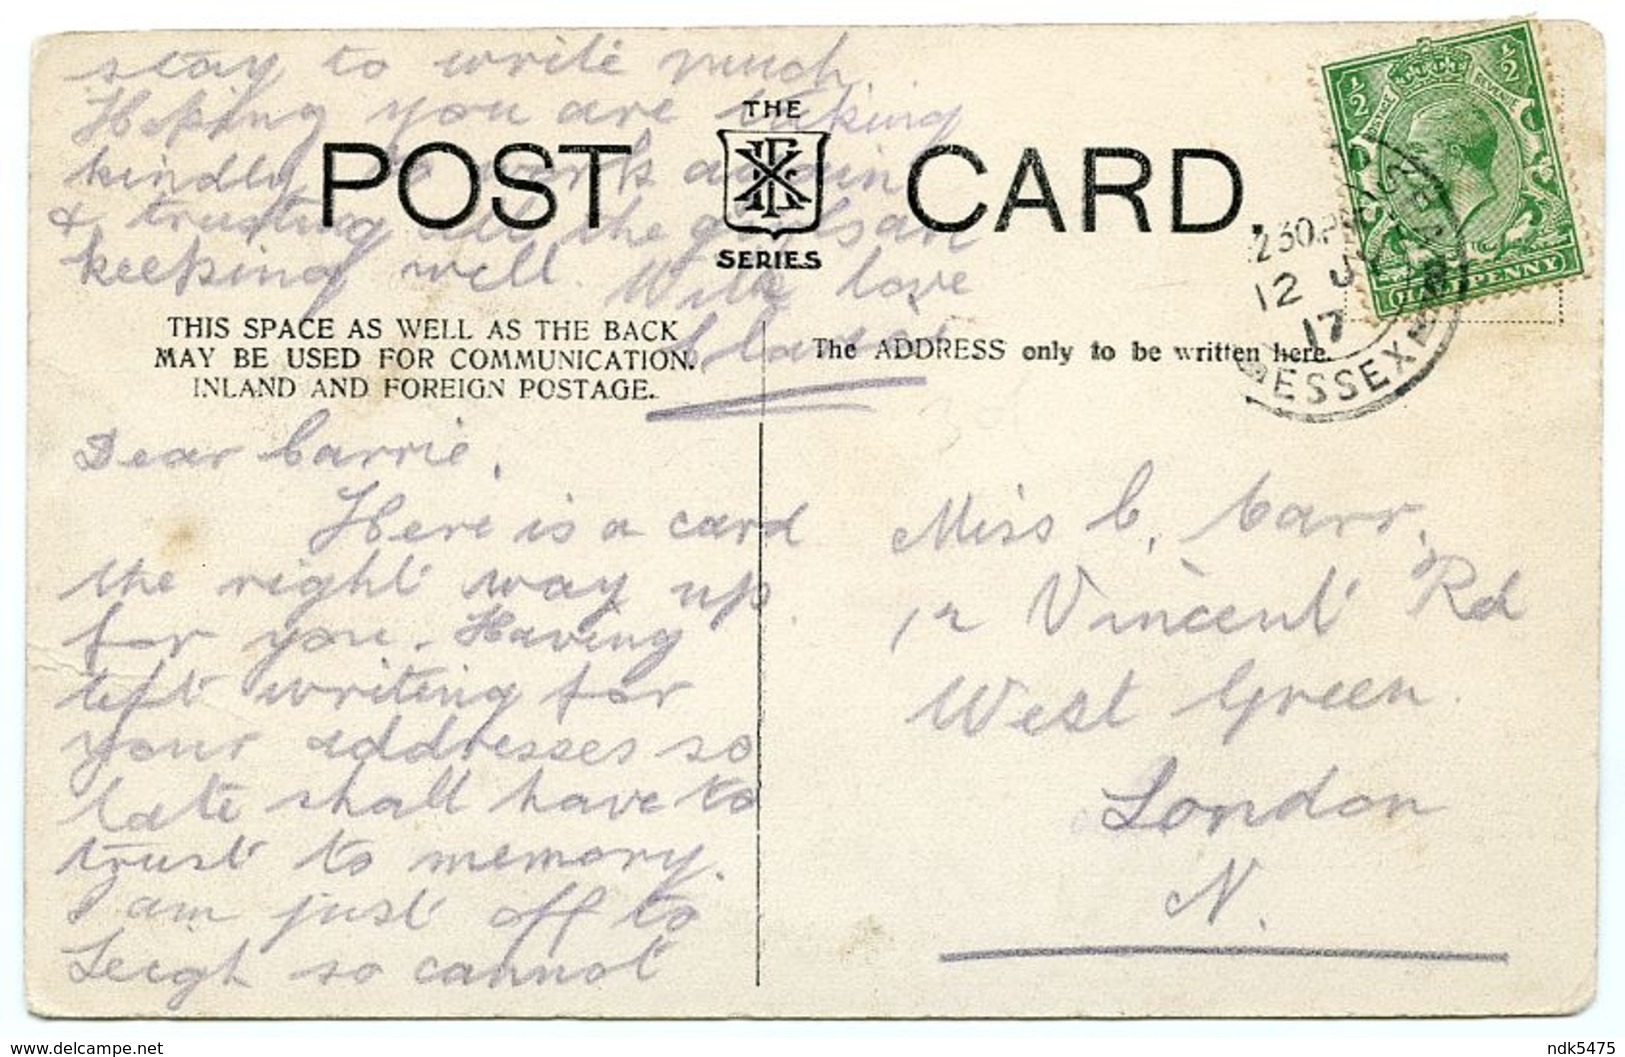 stay to write much.
Hoping you are taking
kindly to work again
& trusting all the girls are
keeping well. With love
POST CARD.
THE
SERIES
THIS SPACE AS WELL AS THE BACK
MAY BE USED FOR COMMUNICATION.
INLAND AND FOREIGN POSTAGE.
The ADDRESS only to be written here.
½ ½
POSTAGE REVENUE
HALFPENNY
2 30 PM
12 JY
17
ESSEX
Dear Carrie,
Here is a card
the right way up
for you. Having
left writing for
your addresses so
late shall have to
trust to memory.
I am just off to
Leigh so cannot
Miss C. Carr,
12 Vincent Rd
West Green.
London
N.
www.delcampe.net
ndk5475